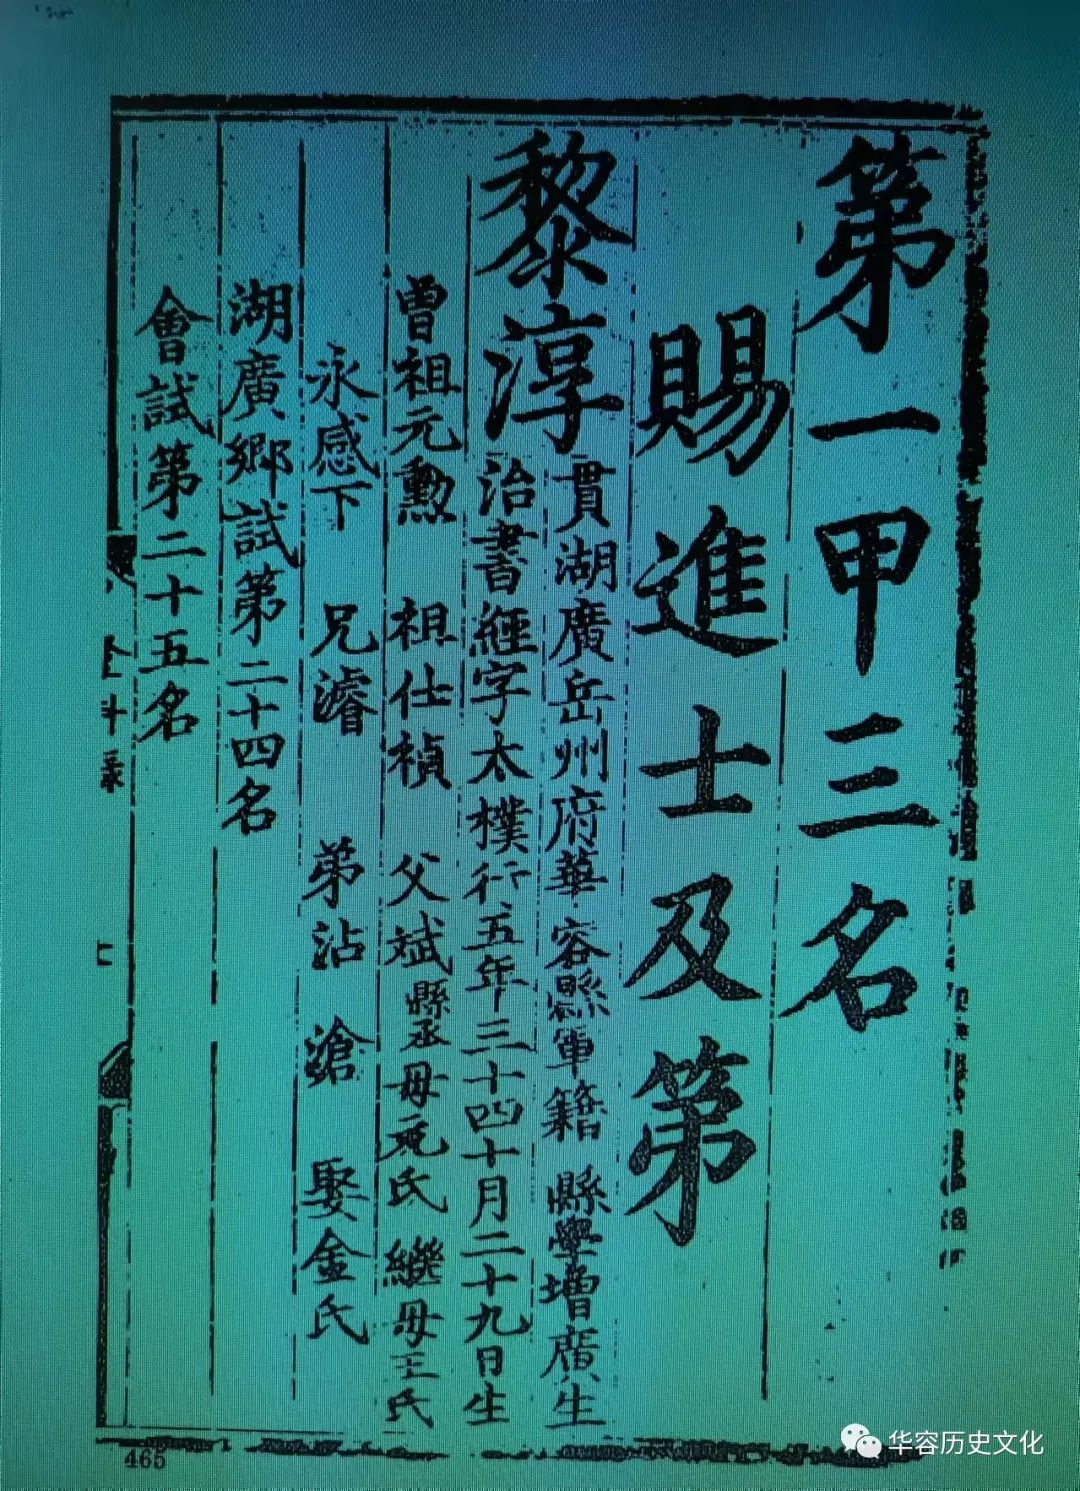 第一甲三名
賜進士及第
黎淳
貫湖廣岳州府華容縣軍籍 縣學增廣生
治書經字太樸行五年三十四十月二十九日生
曾祖元勲 祖仕禎 父斌縣丞母元氏 繼母王氏
永感下 兄濬 弟沾 滄 娶金氏
湖廣鄉試第二十四名
會試第二十五名
465
华容历史文化